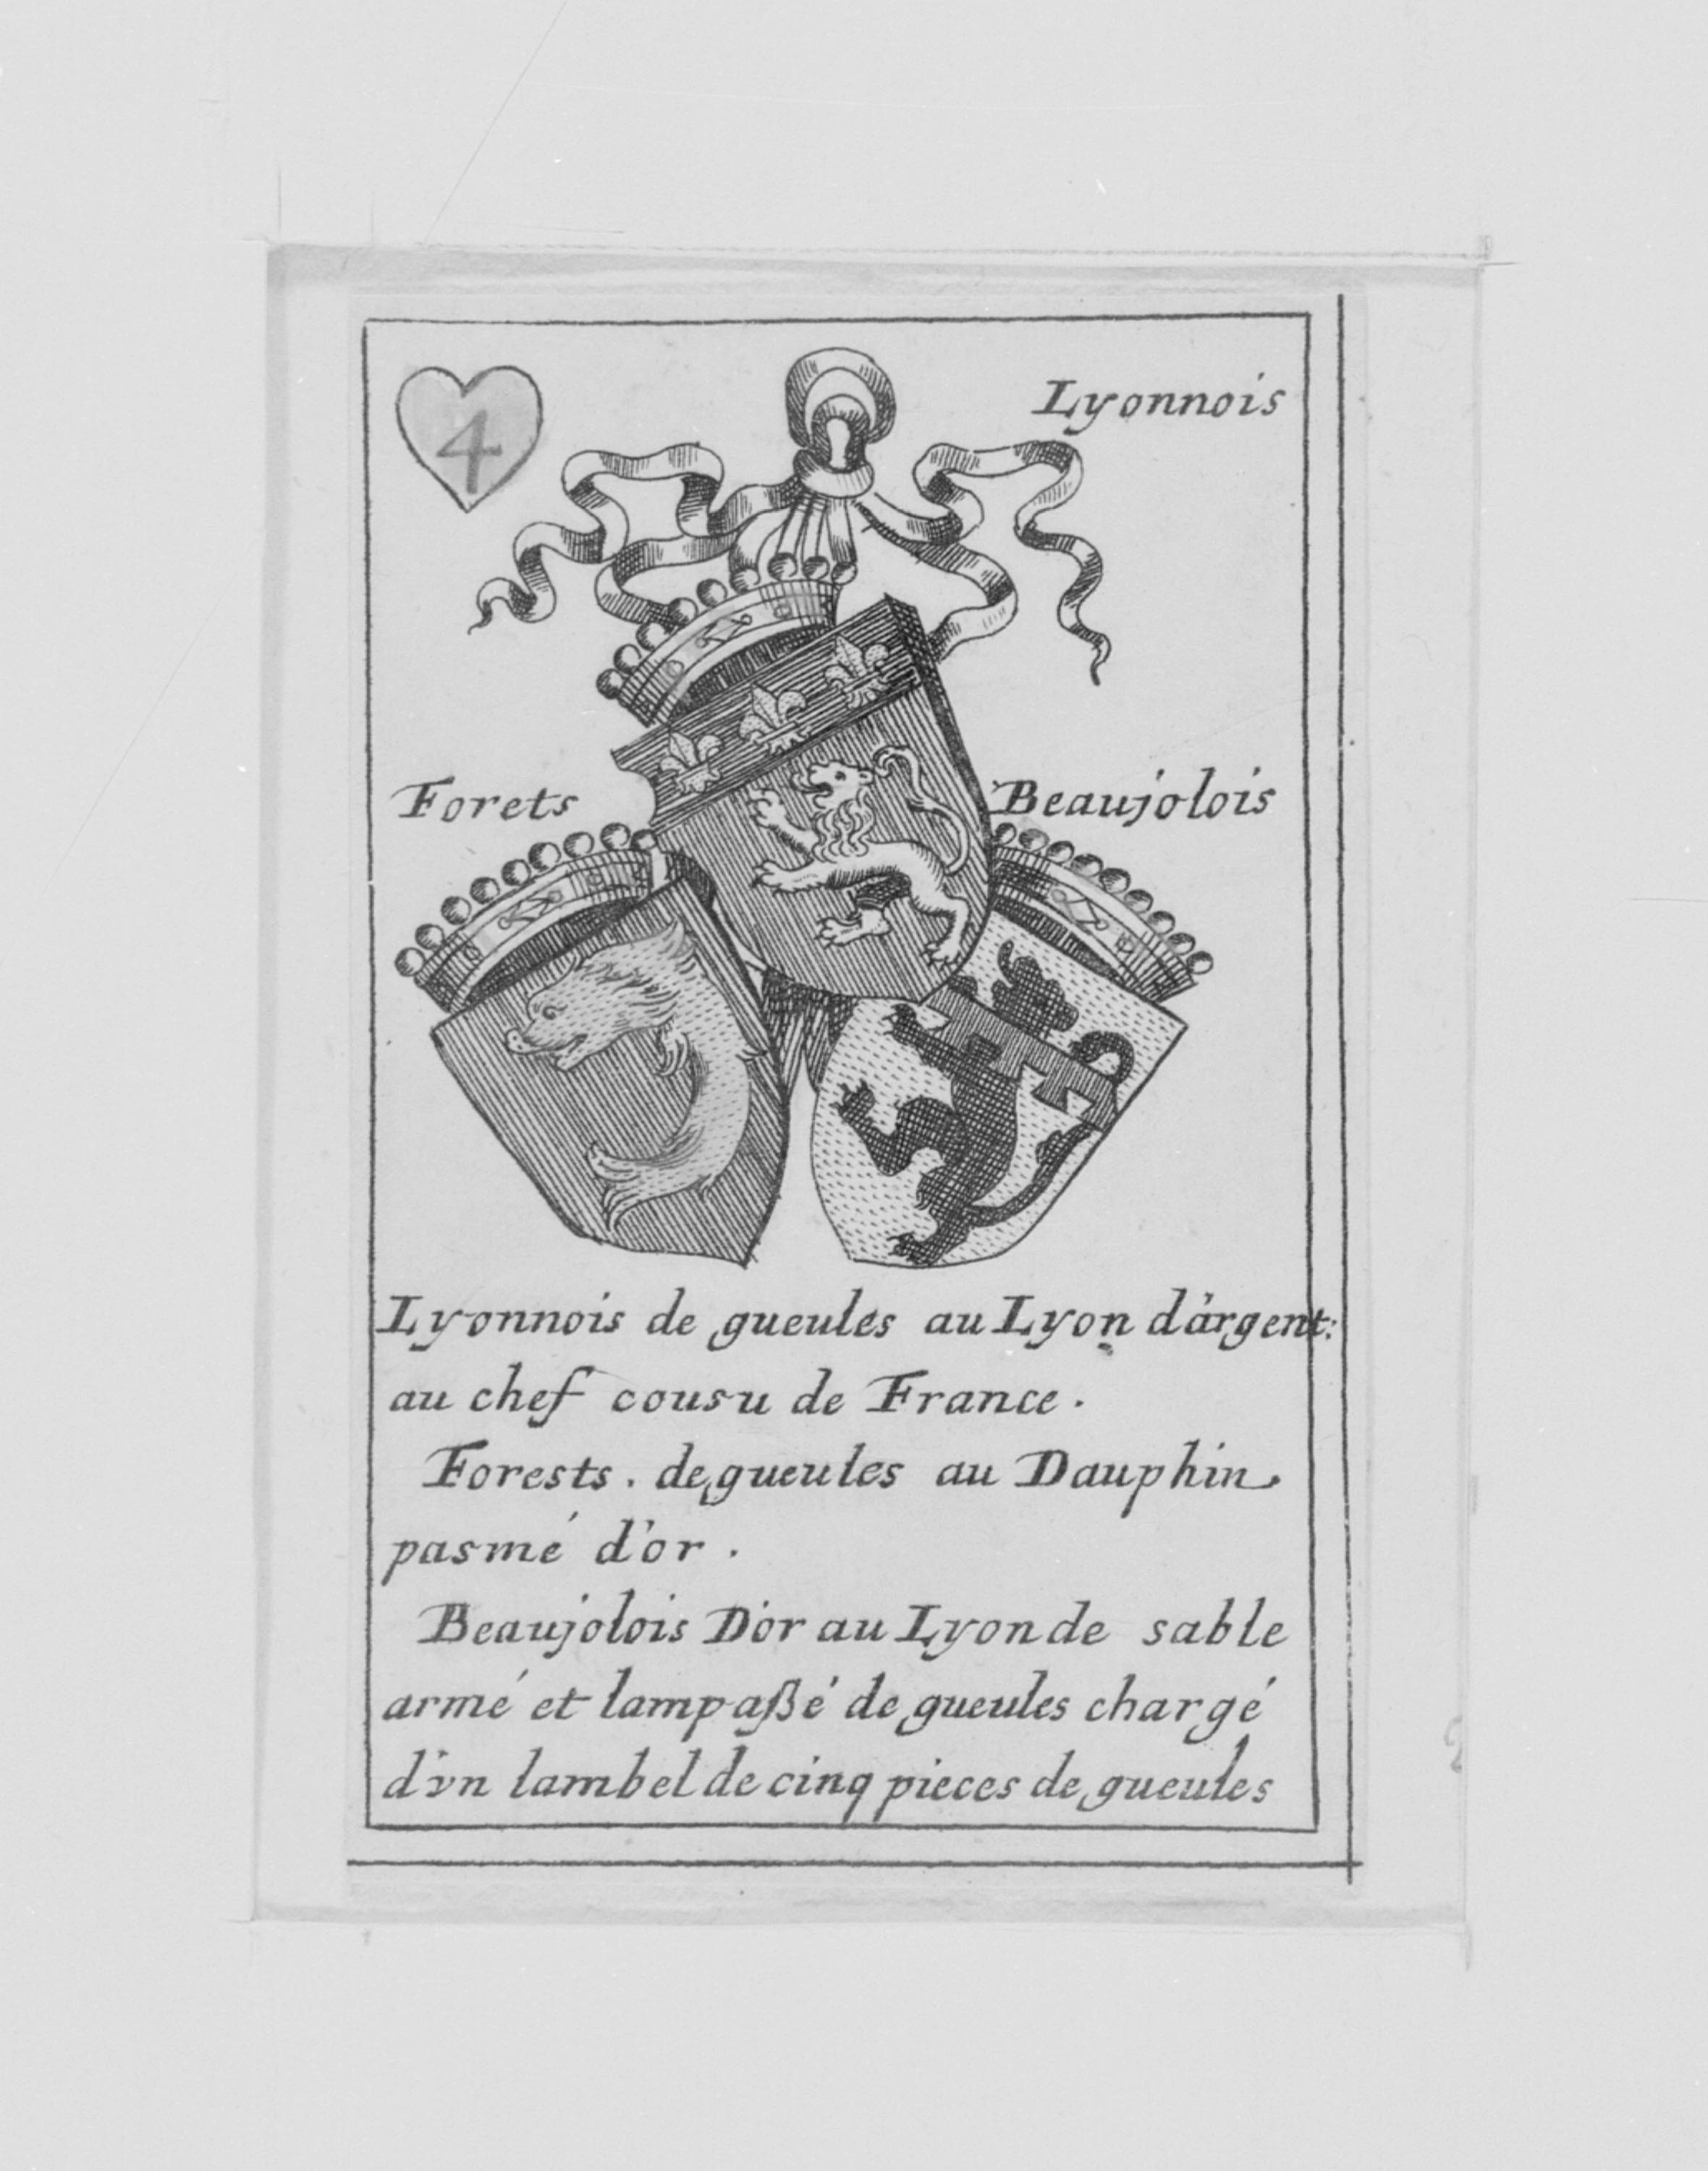 4
Lyonnois
Forets
Beaujolois
Lyonnois de gueules au Lyon d'argent:
au chef cousu de France.
Forests. de gueules au Dauphin
pasmé d'or.
Beaujolois D'or au Lyon de sable
armé et lampaßé de gueules chargé
d'vn lambel de cinq pieces de gueules